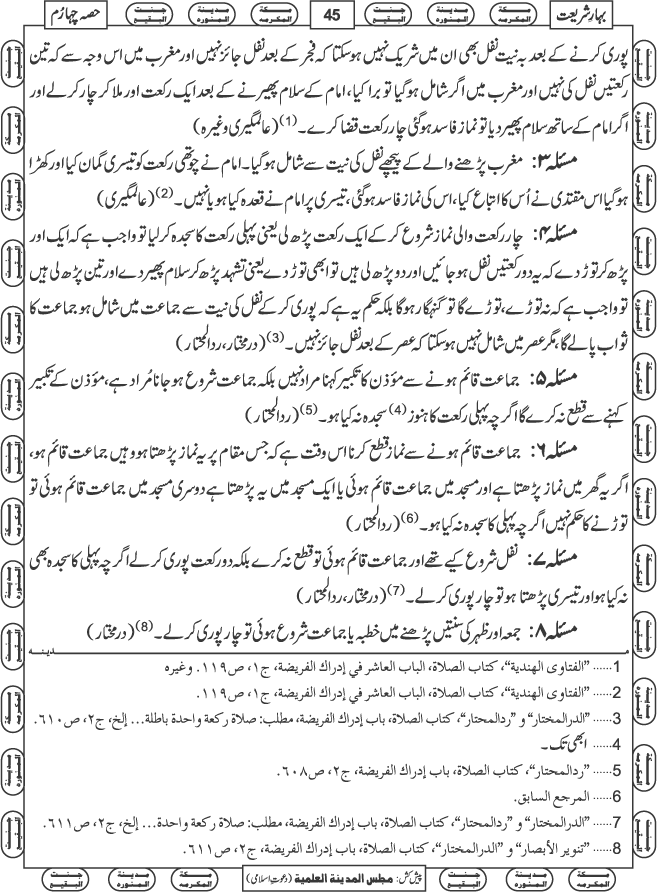 بہارِ شریعت
جنت البقیع
مدینة المنوره
مکة المکرمه
45
جنت البقیع
مدینة المنوره
مکة المکرمه
حصہ چہارم
پوری کرنے کے بعد بہ نیت نفل بھی ان میں شریک نہیں ہوسکتا کہ فجر کے بعد نفل جائز نہیں اور مغرب میں اس وجہ سے کہ تین
رکعتیں نفل کی نہیں اور مغرب میں اگر شامل ہوگیا تو برا کیا، امام کے سلام پھیرنے کے بعد ایک رکعت اور ملا کر چار کرلے اور
اگر امام کے ساتھ سلام پھیر دیا تو نماز فاسد ہوگئی چار رکعت قضا کرے۔(1) (عالمگیری وغیرہ)
مسئلہ ۳: مغرب پڑھنے والے کے پیچھے نفل کی نیت سے شامل ہوگیا۔ امام نے چوتھی رکعت کو تیسری گمان کیا اور کھڑا
ہوگیا اس مقتدی نے اُس کا اتباع کیا، اس کی نماز فاسد ہوگئی، تیسری پر امام نے قعدہ کیا ہو یا نہیں۔(2) (عالمگیری)
مسئلہ ۴: چار رکعت والی نماز شروع کرکے ایک رکعت پڑھ لی یعنی پہلی رکعت کا سجدہ کرلیا تو واجب ہے کہ ایک اور
پڑھ کر توڑ دے کہ یہ دو رکعتیں نفل ہوجائیں اور دو پڑھ لی ہیں تو ابھی توڑ دے یعنی تشہد پڑھ کر سلام پھیر دے اور تین پڑھ لی ہیں
تو واجب ہے کہ نہ توڑے، توڑے گا تو گنہگار ہوگا بلکہ حکم یہ ہے کہ پوری کرکے نفل کی نیت سے جماعت میں شامل ہو جماعت کا
ثواب پالے گا، مگر عصر میں شامل نہیں ہوسکتا کہ عصر کے بعد نفل جائز نہیں۔(3) (درمختار، ردالمحتار)
مسئلہ ۵: جماعت قائم ہونے سے مؤذن کا تکبیر کہنا مراد نہیں بلکہ جماعت شروع ہوجانا مُراد ہے، مؤذن کے تکبیر
کہنے سے قطع نہ کرے گا اگرچہ پہلی رکعت کا ہنوز(4) سجدہ نہ کیا ہو۔(5) (ردالمحتار)
مسئلہ ۶: جماعت قائم ہونے سے نماز قطع کرنا اس وقت ہے کہ جس مقام پر یہ نماز پڑھتا ہو وہیں جماعت قائم ہو،
اگر یہ گھر میں نماز پڑھتا ہے اور مسجد میں جماعت قائم ہوئی یا ایک مسجد میں یہ پڑھتا ہے دوسری مسجد میں جماعت قائم ہوئی تو
توڑنے کا حکم نہیں اگرچہ پہلی کا سجدہ نہ کیا ہو۔(6) (ردالمحتار)
مسئلہ ۷: نفل شروع کیے تھے اور جماعت قائم ہوئی تو قطع نہ کرے بلکہ دو رکعت پوری کرلے اگرچہ پہلی کا سجدہ بھی
نہ کیا ہو اور تیسری پڑھتا ہو تو چار پوری کرلے۔(7) (درمختار، ردالمحتار)
مسئلہ ۸: جمعہ اور ظہر کی سنتیں پڑھنے میں خطبہ یا جماعت شروع ہوئی تو چار پوری کرلے۔(8) (درمختار)
مدینہ
1...... "الفتاوی الهندية"، كتاب الصلاة، الباب العاشر في إدراك الفريضة، ج١، ص١١٩. وغيره
2...... "الفتاوی الهندية"، كتاب الصلاة، الباب العاشر في إدراك الفريضة، ج١، ص١١٩.
3...... "الدرالمختار" و "ردالمحتار"، كتاب الصلاة، باب إدراك الفريضة، مطلب: صلاة ركعة واحدة باطلة... إلخ، ج٢، ص٦١٠.
4...... ابھی تک۔
5...... "ردالمحتار"، كتاب الصلاة، باب إدراك الفريضة، ج٢، ص٦٠٨.
6...... المرجع السابق.
7...... "الدرالمختار" و "ردالمحتار"، كتاب الصلاة، باب إدراك الفريضة، مطلب: صلاة ركعة واحدة... إلخ، ج٢، ص٦١١.
8...... "تنوير الأبصار" و "الدرالمختار"، كتاب الصلاة، باب إدراك الفريضة، ج٢، ص٦١١.
مکة المکرمه
مدینة المنوره
جنت البقیع
پیش کش: مجلس المدينة العلمية (دعوتِ اسلامی)
مکة المکرمه
مدینة المنوره
جنت البقیع